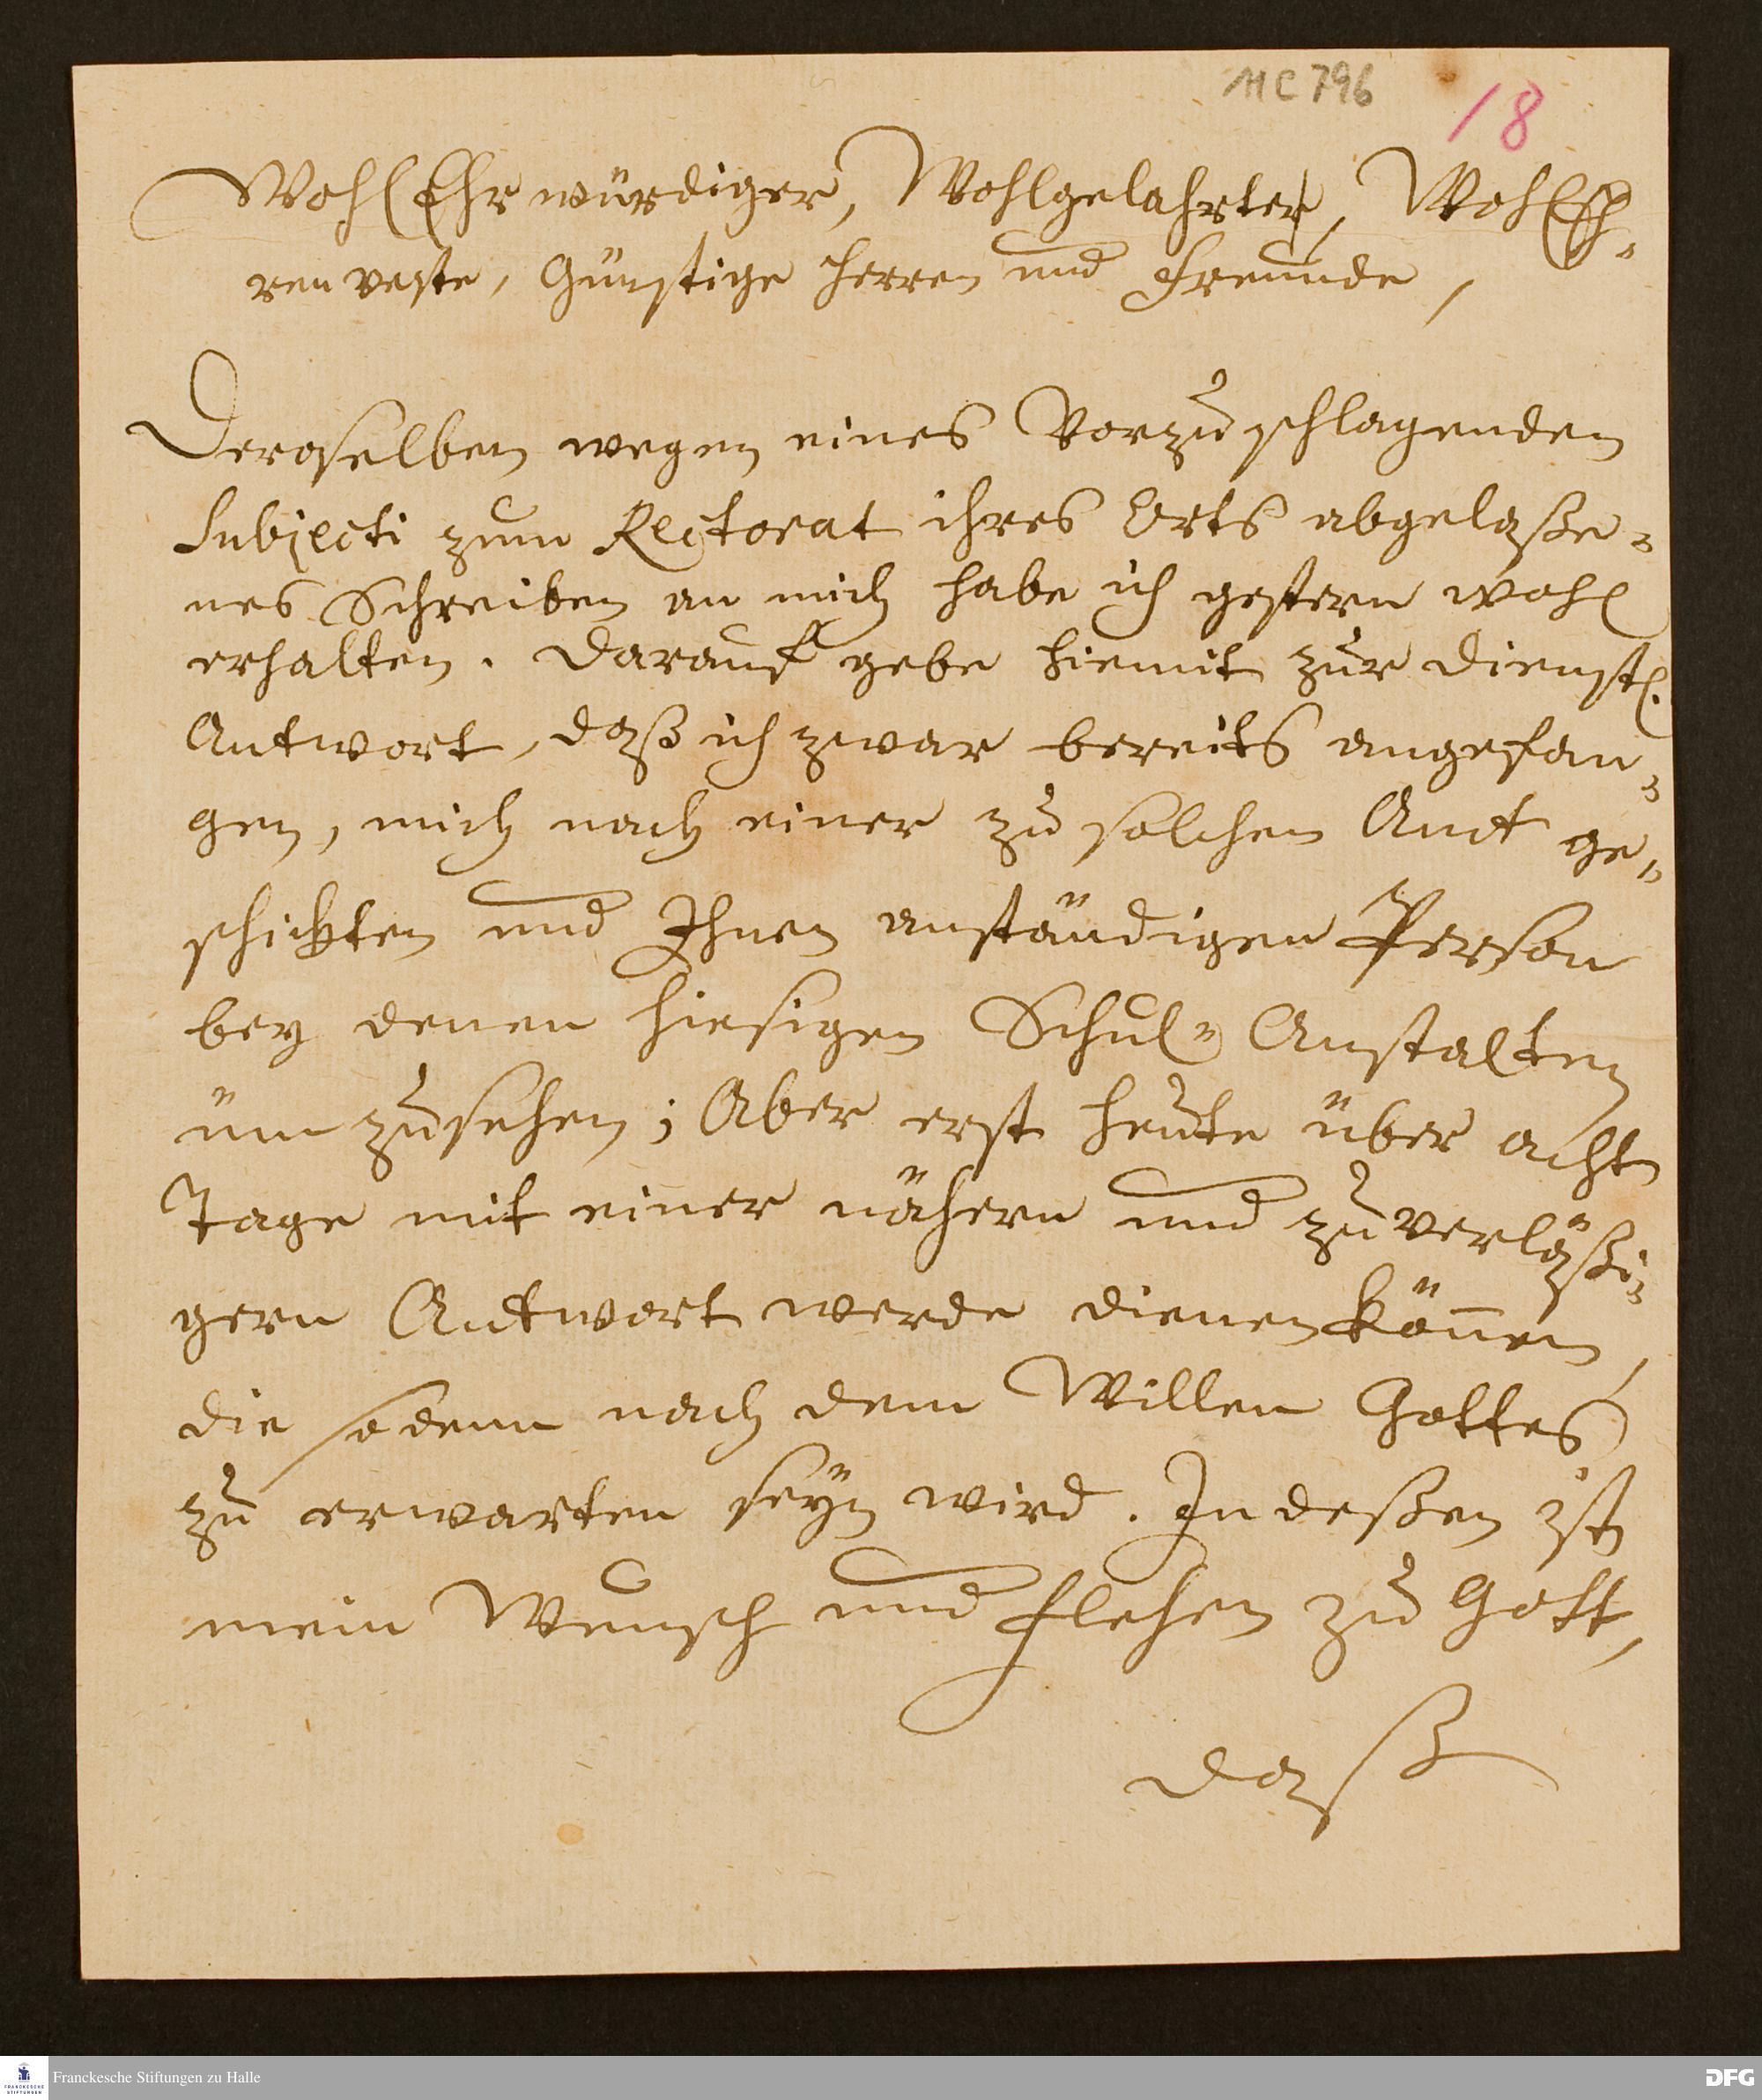 11 C 796
18
WohlEhrwürdiger, Wohlgelahrter, WohlEh-
renveste, Günstige Herren und Freunde,
Deroselben wegen eines Vorzuschlagenden
Subjecti zum Rectorat ihres Orts abgelaße-
nes Schreiben an mich habe ich gestern wohl
erhalten. Darauf gebe hiemit zur dienstl.
Antwort, daß ich zwar bereits angefan-
gen, mich nach einer zu solchen Amt ge-
schickten und Ihnen anständigen Person
bey denen hiesigen Schul-Anstalten
üm zusehen; Aber erst heute über acht
Tage mit einer nähern und zuverläßi-
gern Antwort werde dienen können,
die sodenn nach dem Willen Gottes
zu erwarten seyn wird. Indeßen ist
mein Wunsch und Flehen zu Gott,
daß
Franckesche Stiftungen zu Halle
DFG